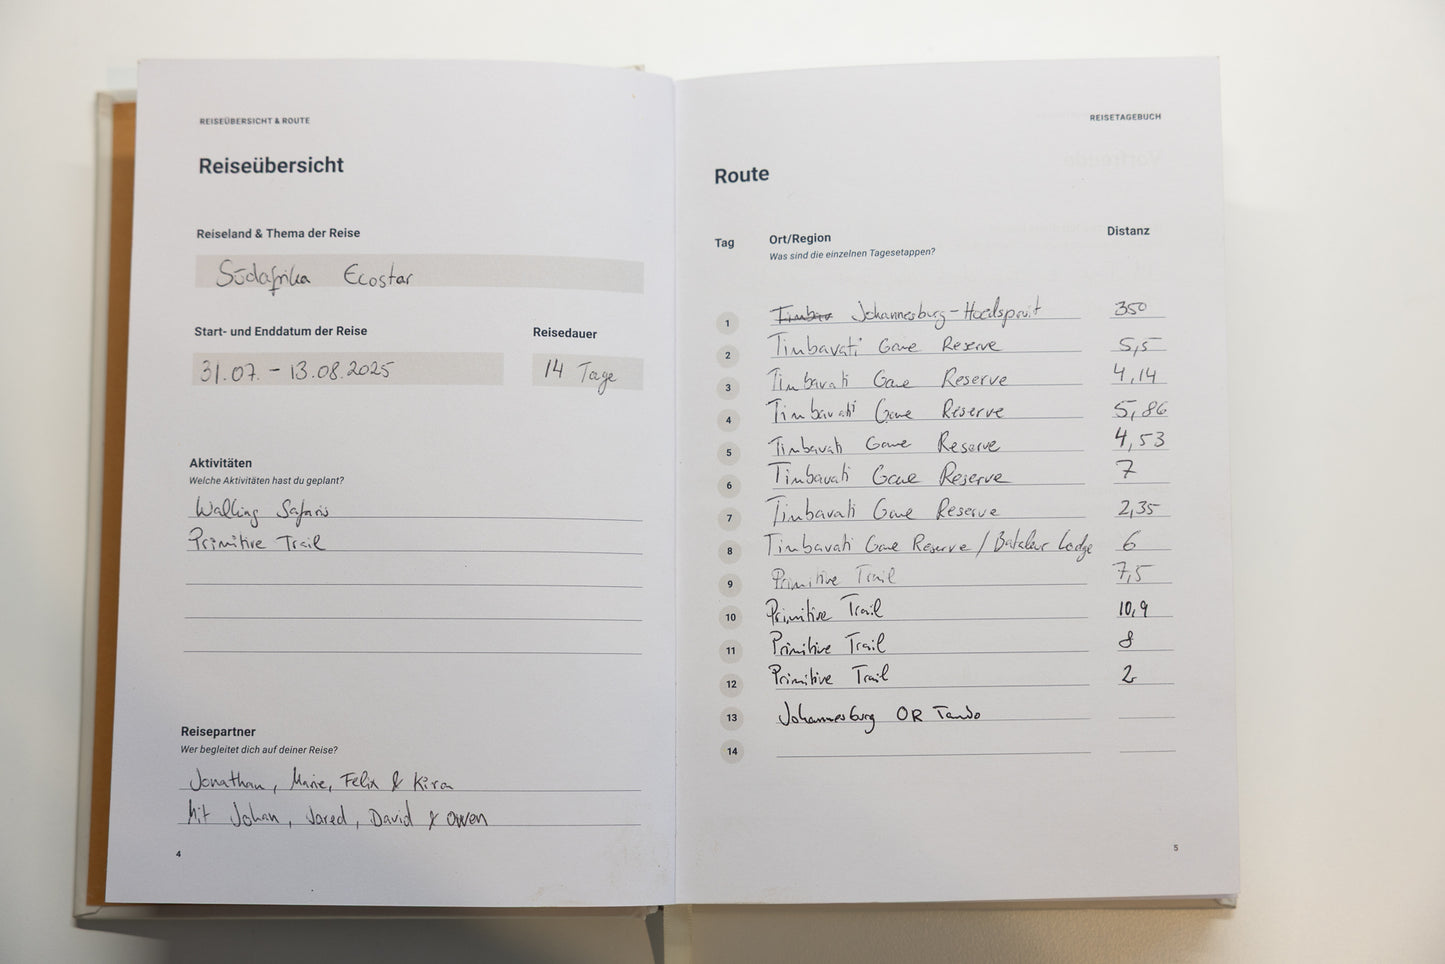 REISEÜBERSICHT & ROUTE
Reiseübersicht
Reiseland & Thema der Reise
Südafrika Ecostar
Start- und Enddatum der Reise Reisedauer
31.07. – 13.08.2025 14 Tage
Aktivitäten
Welche Aktivitäten hast du geplant?
Walking Safaris
Primitive Trail
Reisepartner
Wer begleitet dich auf deiner Reise?
Jonathan, Marie, Felix & Kira
Mit Johan, Jared, David & Owen
4
REISETAGEBUCH
Route
Tag Ort/Region Distanz
Was sind die einzelnen Tagesetappen?
1 Johannesburg – Hoedspruit 350
2 Timbavati Game Reserve 5,5
3 Timbavati Game Reserve 4,14
4 Timbavati Game Reserve 5,86
5 Timbavati Game Reserve 4,53
6 Timbavati Game Reserve 7
7 Timbavati Game Reserve 2,35
8 Timbavati Game Reserve / Bataleur Lodge 6
9 Primitive Trail 7,5
10 Primitive Trail 10,9
11 Primitive Trail 8
12 Primitive Trail 2
13 Johannesburg OR Tambo
14
5